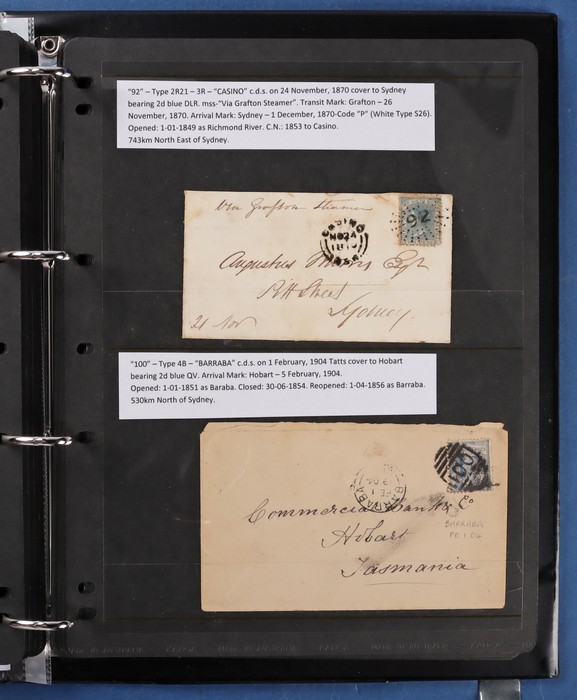 "92" – Type 2R21 – 3R – "CASINO" c.d.s. on 24 November, 1870 cover to Sydney
bearing 2d blue DLR. mss-"Via Grafton Steamer". Transit Mark: Grafton – 26
November, 1870. Arrival Mark: Sydney – 1 December, 1870-Code "P" (White Type S26).
Opened: 1-01-1849 as Richmond River. C.N.: 1853 to Casino.
743km North East of Sydney.
Via Grafton Steamer
CASINO
NO 24
92
Augustus Esqr
Pitt Street
Sydney.
21 Nov
"100" – Type 4B – "BARRABA" c.d.s. on 1 February, 1904 Tatts cover to Hobart
bearing 2d blue QV. Arrival Mark: Hobart – 5 February, 1904.
Opened: 1-01-1851 as Baraba. Closed: 30-06-1854. Reopened: 1-04-1856 as Barraba.
530km North of Sydney.
100
BARRABA
FE 1
04
Commercial Bank
Hobart
Tasmania
BARRABA
FE 1 04